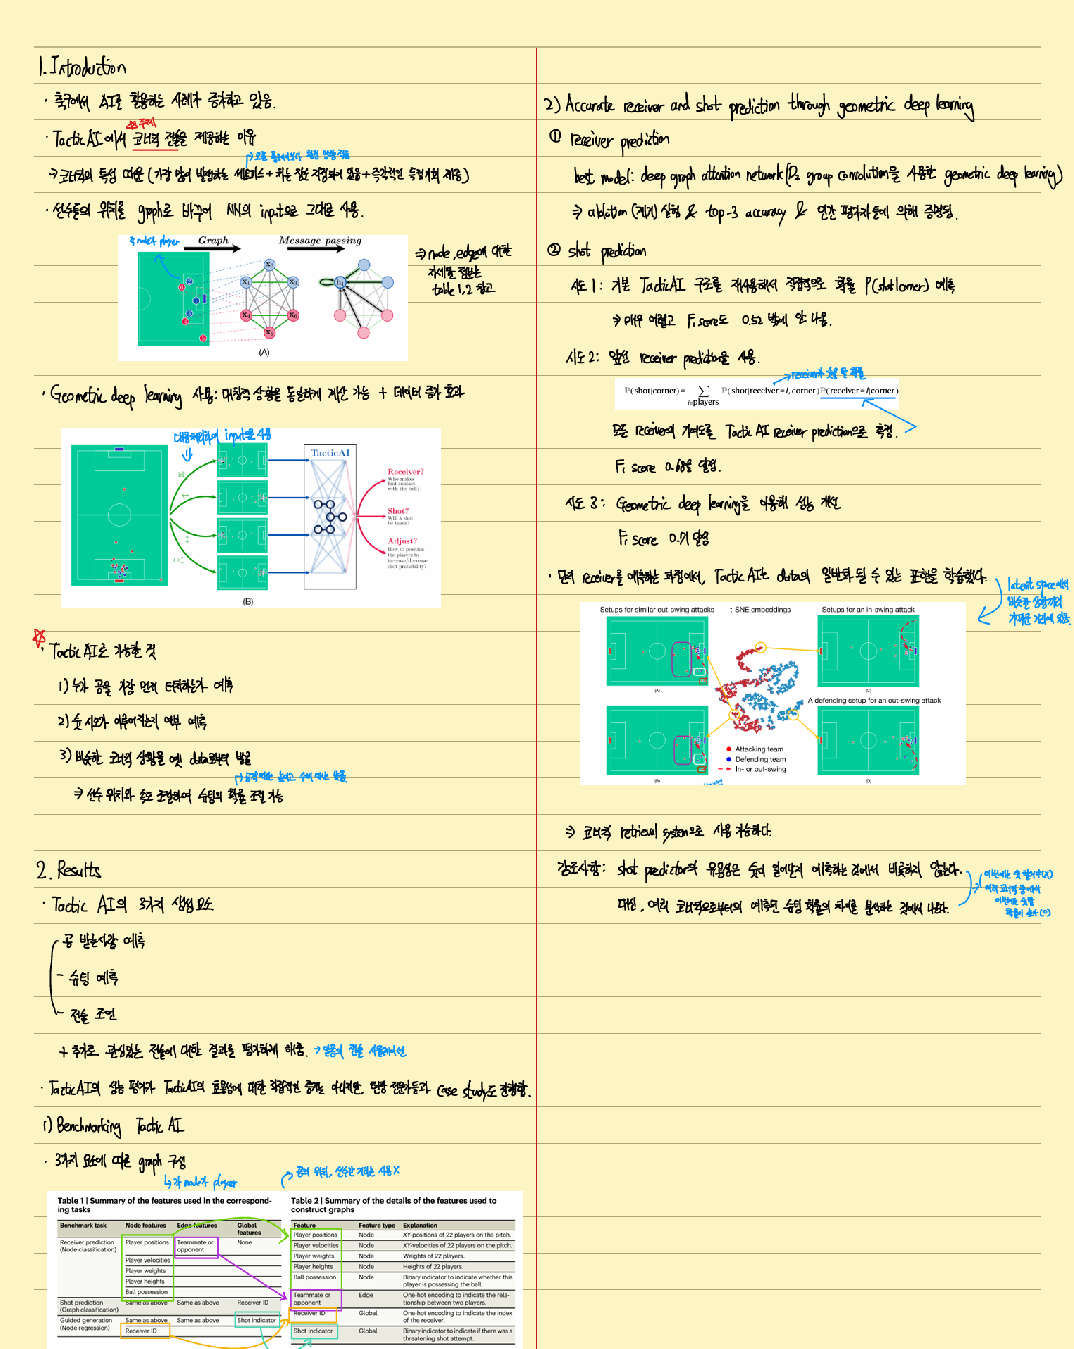 1. Introduction
· 축구에서 AI를 활용하는 사례가 증가하고 있음.
주제
· TacticAI에서 코너킥 전술을 제공하는 이유
→ 코너킥의 특성 때문 (가장 많이 발생하는 세트피스 + 즉각적인 득점기회 제공)
· 선수들의 위치를 graph로 바꾸어 NN의 input으로 그대로 사용.
각 node가 player
Graph
Message passing
⇒ node, edge에 대한
자세한 정보는
table 1, 2 참고
(A)
· Geometric deep learning 사용: 대칭적 상황을 동일하게 계산 가능 + 데이터 증가 효과
input으로 사용
TacticAI
Receiver?
Who makes
first contact
with the ball?
Shot?
Will a shot
be taken?
Adjust?
How to position
the players to
increase/decrease
shot probability?
(B)
· Tactic AI로 가능한 것
1) 누가 공을 가장 먼저 터치하는가 예측
2) 슛 시도가 이루어지는지 여부 예측
3) 비슷한 코너킥 상황을 옛 data로부터 발굴
⇒ 선수 위치와 속도 조절하여 슈팅의 확률 조절 가능
2. Results
· Tactic AI의 3가지 핵심 요소
- 공 받는사람 예측
- 슈팅 예측
- 전술 조언
+ 추가로 관심있는 전술에 대한 결과를 평가하게 해줌. → 일종의 전술 시뮬레이션
· TacticAI의 성능 평가가 TacticAI의 효용성에 대한 직접적인 증거는 아니지만, 관련 전문가들과 case study도 진행함.
1) Benchmarking Tactic AI
· 3가지 요소에 따른 graph 구성
↳ 각 node가 player
공의 위치, 선수간 거리는 사용 X
Table 1 | Summary of the features used in the correspond-
ing tasks
Benchmark task Node features Edge features Global features
Receiver prediction (Node classification) Player positions Teammate or opponent None
Player velocities
Player weights
Player heights
Ball possession
Shot prediction (Graph classification) Same as above Same as above Receiver ID
Guided generation (Node regression) Same as above Same as above Shot indicator
Receiver ID
Table 2 | Summary of the details of the features used to
construct graphs
Feature Feature type Explanation
Player positions Node XY-positions of 22 players on the pitch.
Player velocities Node XY-velocities of 22 players on the pitch.
Player weights Node Weights of 22 players.
Player heights Node Heights of 22 players.
Ball possession Node Binary indicator to indicate whether this player is possessing the ball.
Teammate or opponent Edge One-hot encoding to indicate the relationship between two players.
Receiver ID Global One-hot encoding to indicate the index of the receiver.
Shot indicator Global Binary indicator to indicate if there was a threatening shot attempt.
2) Accurate receiver and shot prediction through geometric deep learning
① receiver prediction
best model: deep graph attention network(D₂ group convolution을 사용한 geometric deep learning)
⇒ ablation (제거) 실험 & top-3 accuracy & 인간 평가자들에 의해 증명됨.
② shot prediction
시도 1: 기본 TacticAI 구조를 재사용해서 직접적으로 확률 P(shot|corner) 예측
⇒ 매우 어렵고 F₁ score도 0.52 밖에 안 나옴.
시도 2: 앞선 receiver prediction을 사용.
receiver가 슛을 할 확률
P(shot|corner) = Σ P(shot|receiver = i, corner)P(receiver = i|corner)
i∈players
모든 receiver의 기여도를 Tactic AI receiver prediction으로 측정.
F₁ score 0.68을 달성.
시도 3: Geometric deep learning을 이용해 성능 개선
F₁ score 0.71 달성
· 단지 receiver를 예측하는 과정에서, Tactic AI는 data의 일반화 될 수 있는 표현을 학습했다.
latent space에서
비슷한 상황끼리
가까운 거리에 있음.
Setups for similar out-swing attacks
t-SNE embeddings
Setups for an in-swing attack
(A)
(C)
A defending setup for an out-swing attack
Attacking team
Defending team
In- or out-swing
(B)
(D)
⇒ 코너킥 retrieval system으로 사용 가능하다.
강조사항: shot predictor의 유용성은 슛이 일어날지 예측하는 것에서 비롯하지 않는다.
대신, 여러 코너킥으로부터의 예측된 슈팅 확률의 차이를 분석하는 것에서 나온다.
이번에는 슛 할거야(X)
여러 코너킥 중에서
이번에는 슛할
확률이 높다 (O)